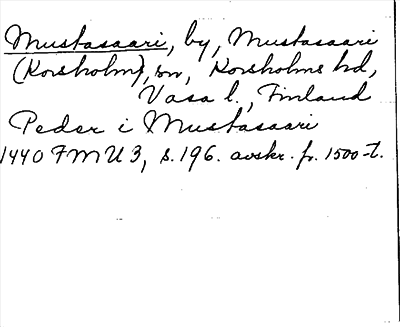 Mustasaari, by, Mustasaari
(Korsholm), sn, Korsholms hd,
Vasa l., Finland
Peder i Mustasaari
1440 FMU 3, s. 196. avskr. fr. 1500-t.